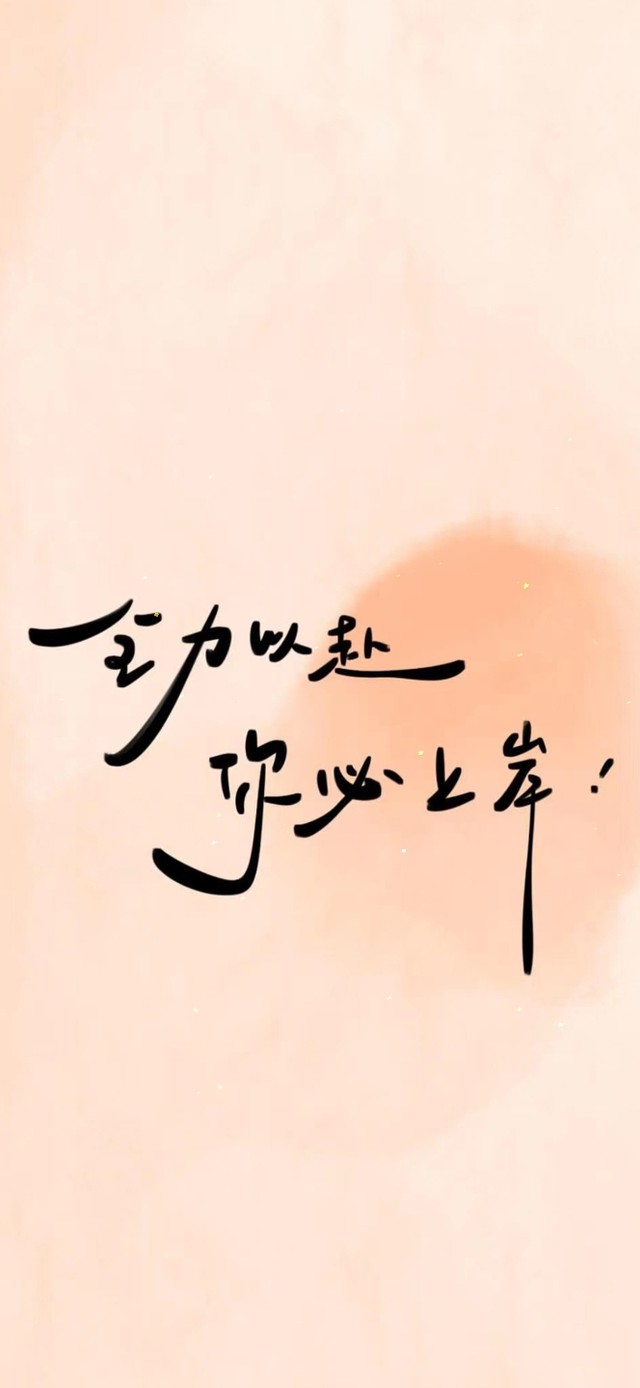 全力以赴
你必上岸！